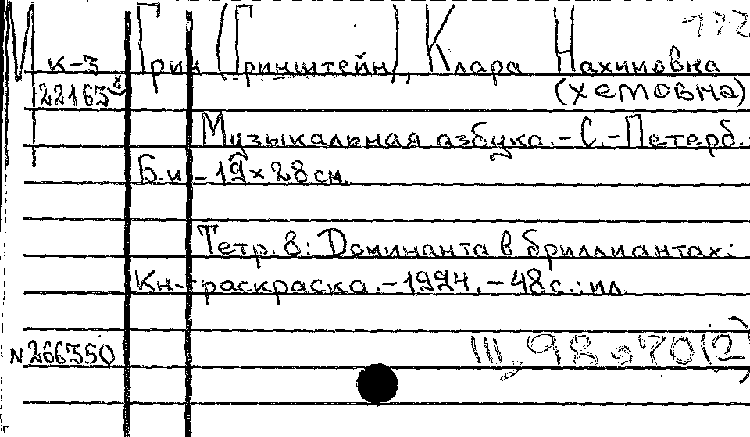 М к-3 Грин (Гринштейн), Клара Нахимовна
22163 (хемовна)
Музыкальная азбука. - С.-Петерб.:
Б.и - 19×28 см.
Тетр. 8: Доминанта в бриллиантах:
Кн.-раскраска. - 1994. - 48с.: ил.
N 266350